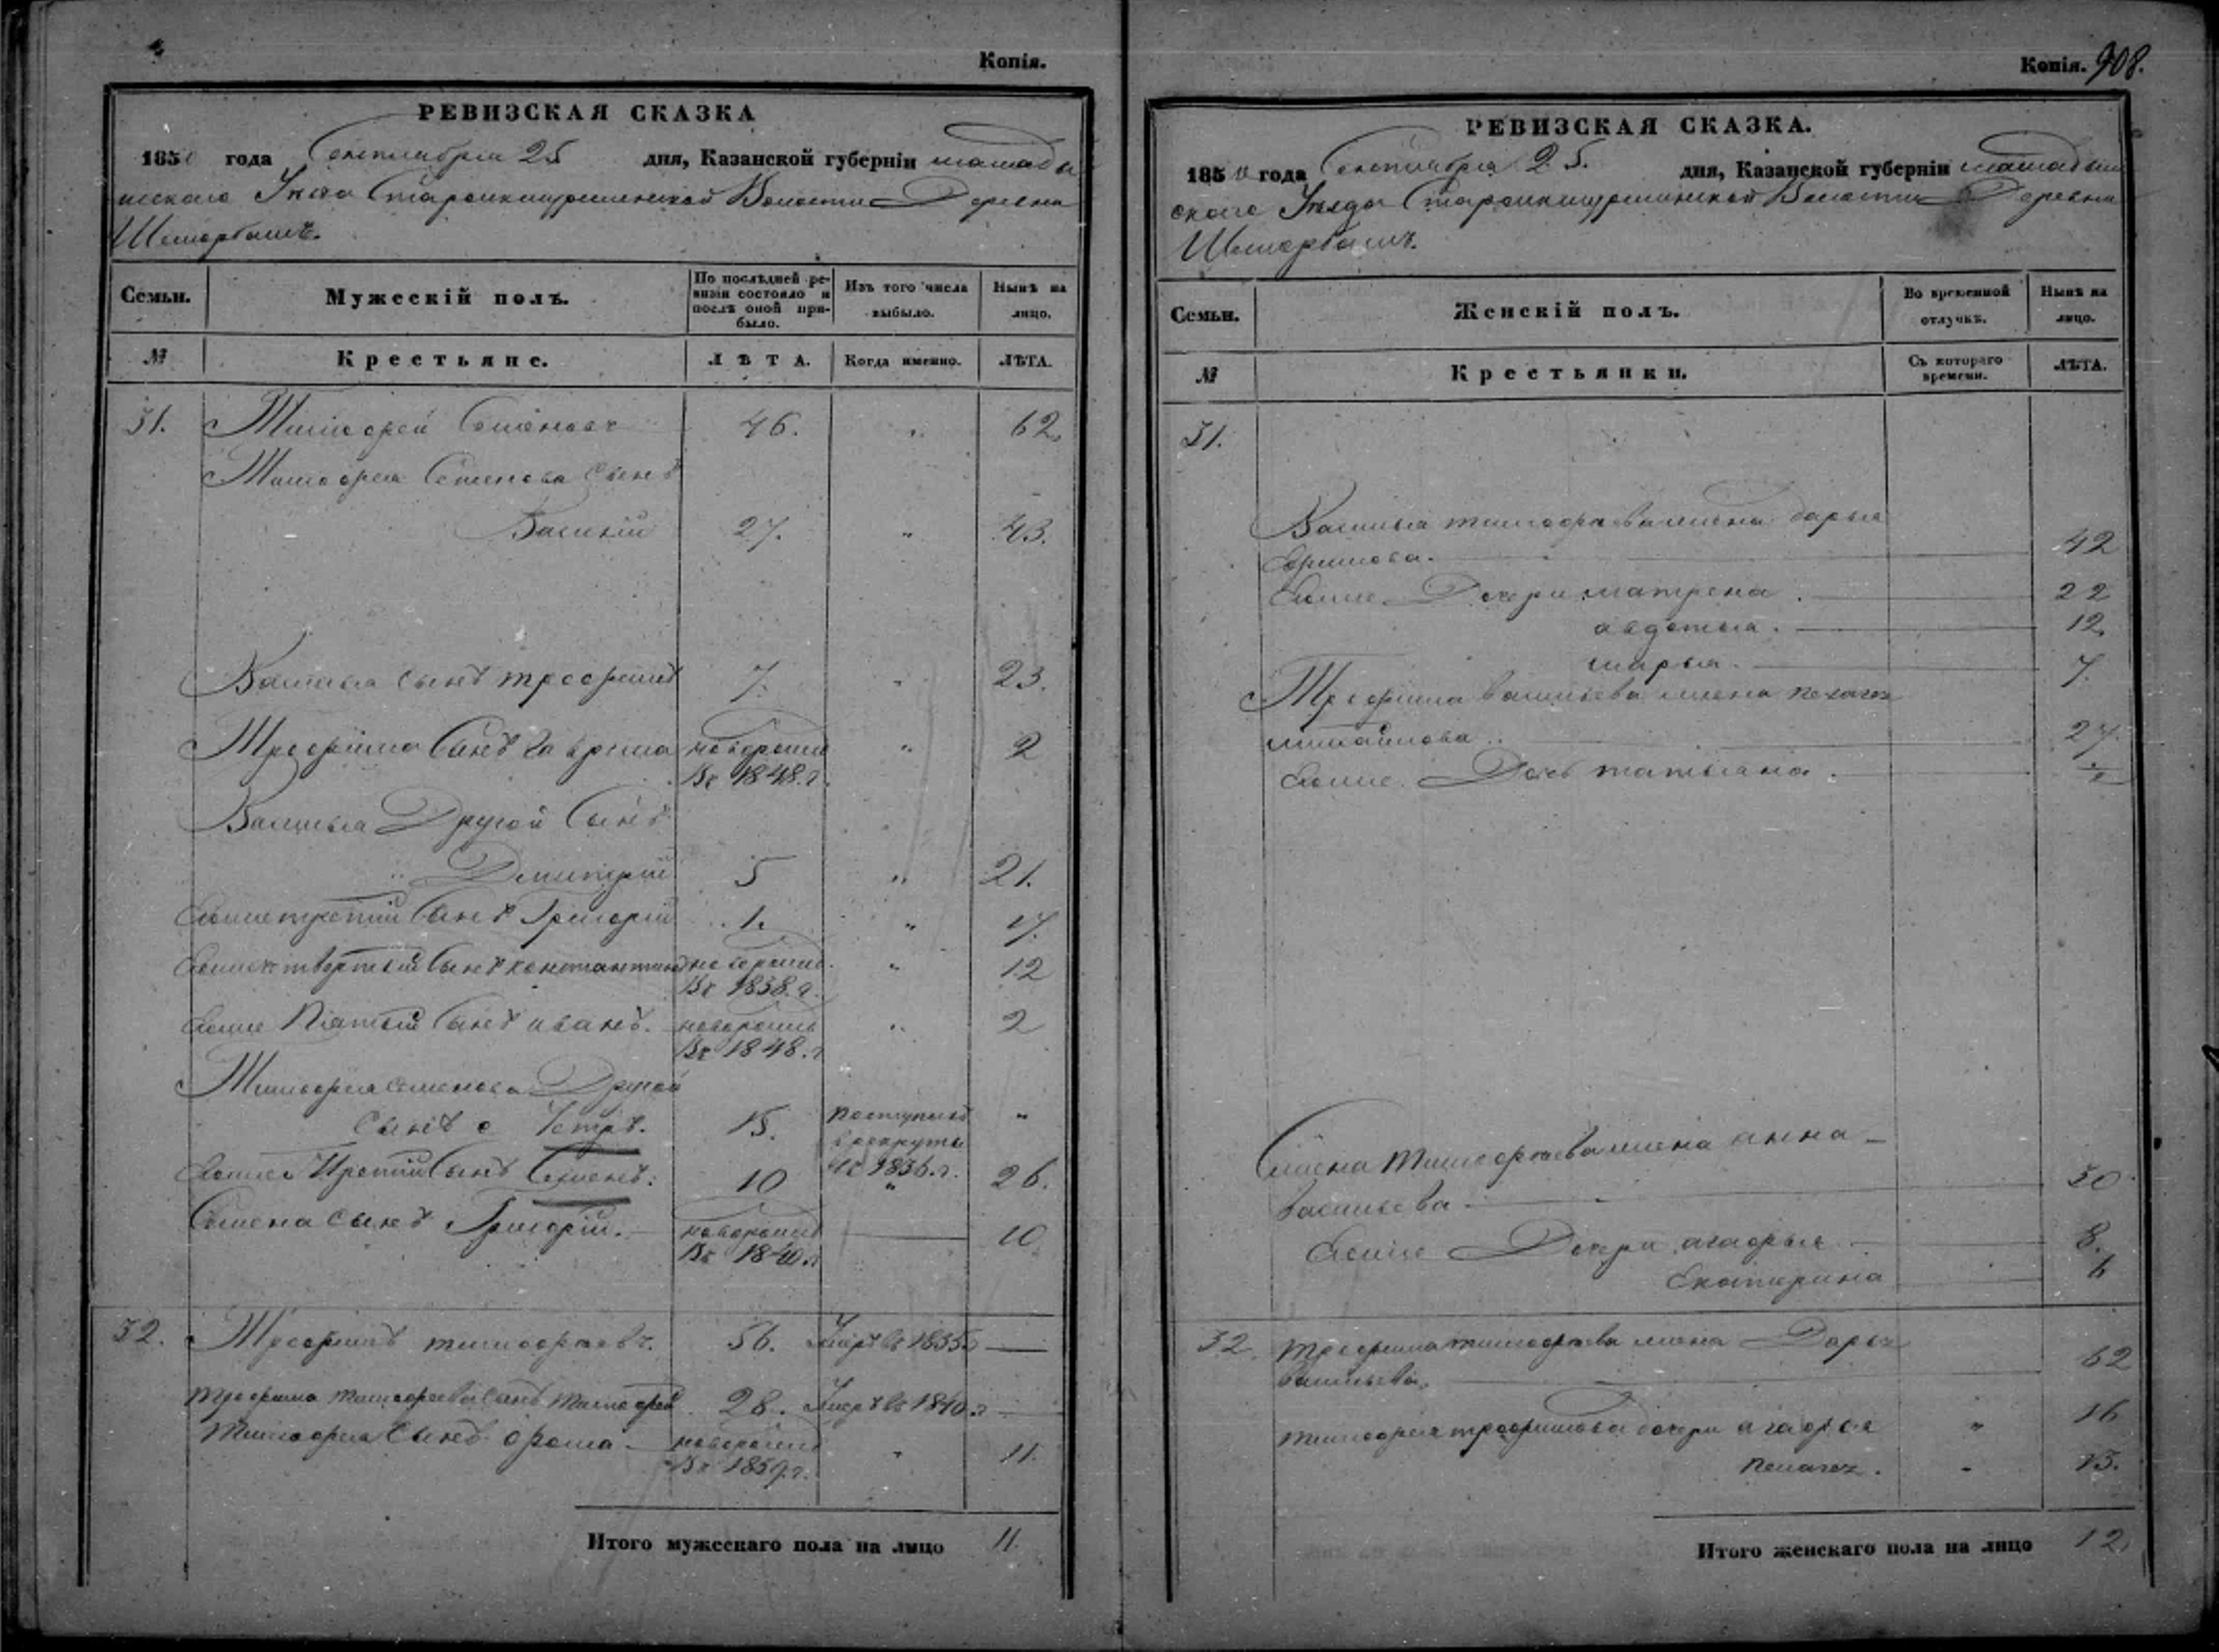 Копія.
РЕВИЗСКАЯ СКАЗКА
1850 года Сентября 25 дня, Казанской губерніи мамады
шскаго Старокищинской Волости Деревни
Шеморбашъ.
Семьи.
Мужескій полъ.
По послѣдней ре-
визіи состояло и
послѣ оной при-
было.
Изъ того числа
выбыло.
Нынѣ на
лицо.
№
Крестьяне.
ЛѢТА.
Когда именно.
ЛѢТА.
31. Тимофей Семеновъ 46. „ 62.
Тимофея Семенова сынъ
Василій 27. „ 43.
Василья сынъ трофимъ 7. „ 23.
Трофима Сынъ Гаврила новорожд „ 2
Въ 1848.г.
Василья Другой Сынъ
Дмитрій 5 „ 21.
Ево же третій Сынъ Григорій 1. „ 17.
Ево же четвертый Сынъ константинъ новорожд. „ 12
Въ 1838.г.
Ево же Пятый Сынъ иванъ. новорожд „ 2
Въ 1848.г
Тимофея семенова Другой
Сынъ Петръ. 15. поступилъ „
в рекруты
1836.г.
Ево же Третій Сынъ Семенъ. 10 „ 26.
Семена сынъ Григорій. новорожд 10
Въ 1840.г
32. Трофимъ тимофеевъ. 56. Умеръ въ 1835г
трофима тимофеева Сынъ тимофей 28. Умеръ въ 1840.г
тимофея Сынъ фома новорожд „ 11.
Въ 1839.г.
Итого мужескаго пола на лицо 11.
Копія. 908.
РЕВИЗСКАЯ СКАЗКА.
1850 года Сентября 25. дня, Казанской губерніи мамадыш
скаго Уезда Волости Деревни
Шеморбашъ.
Семьи.
Женскій полъ.
Во временной
отлучкѣ.
Нынѣ на
лицо.
№
Крестьянки.
Съ котораго
времени.
ЛѢТА.
31.
Василья тимофеева жена дарья
Ефимова. 42
Ево же Дочери матрена. 22
авдотья. 12
марья. 7.
Трофима васильева жена пелагея
михайлова. 27.
Ево же Дочь татьяна.
Семена тимофеева жена анна
васильева 30
Ево же Дочери агафья 8.
Екатерина 6
32. трофима тимофеева жена Дарья
васильева. 62
тимофея трофимова дочери агафья „ 16
пелагея. „ 13.
Итого женскаго пола на лицо 12.